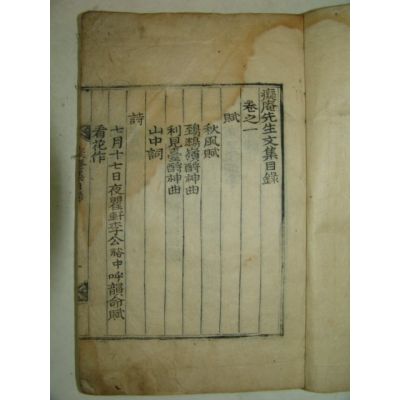 癡庵先生文集目錄
卷之一
賦
秋風賦
鵄嶺醻神曲
利見臺醻神曲
山中詞
詩
七月十七日夜瞿軒李公裕中呼韻命賦
看花作